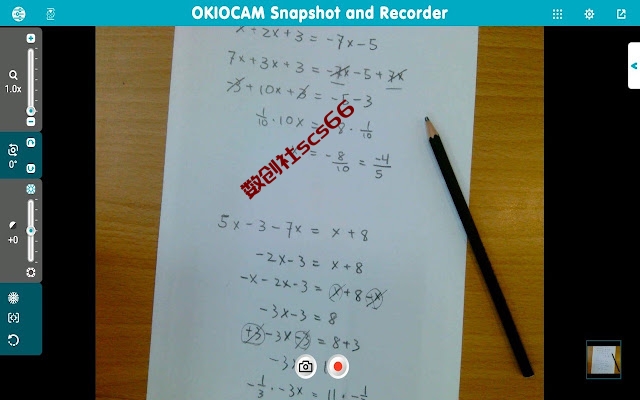 OKIOCAM Snapshot and Recorder
1.0x
0°
+0
x + 2x + 3 = -7x - 5
7x + 3x + 3 = -7x - 5 + 7x
-3 + 10x + 3 = -5 - 3
1/10 · 10x = 8 · 1/10
= -8/10 = -4/5
数创社scs66
5x - 3 - 7x = x + 8
-2x - 3 = x + 8
-x - 2x - 3 = x + 8 - x
-3x - 3 = 8
+3 - 3x - 3 = 8 + 3
-3x
-1/3 · -3x = 11 · -1/3